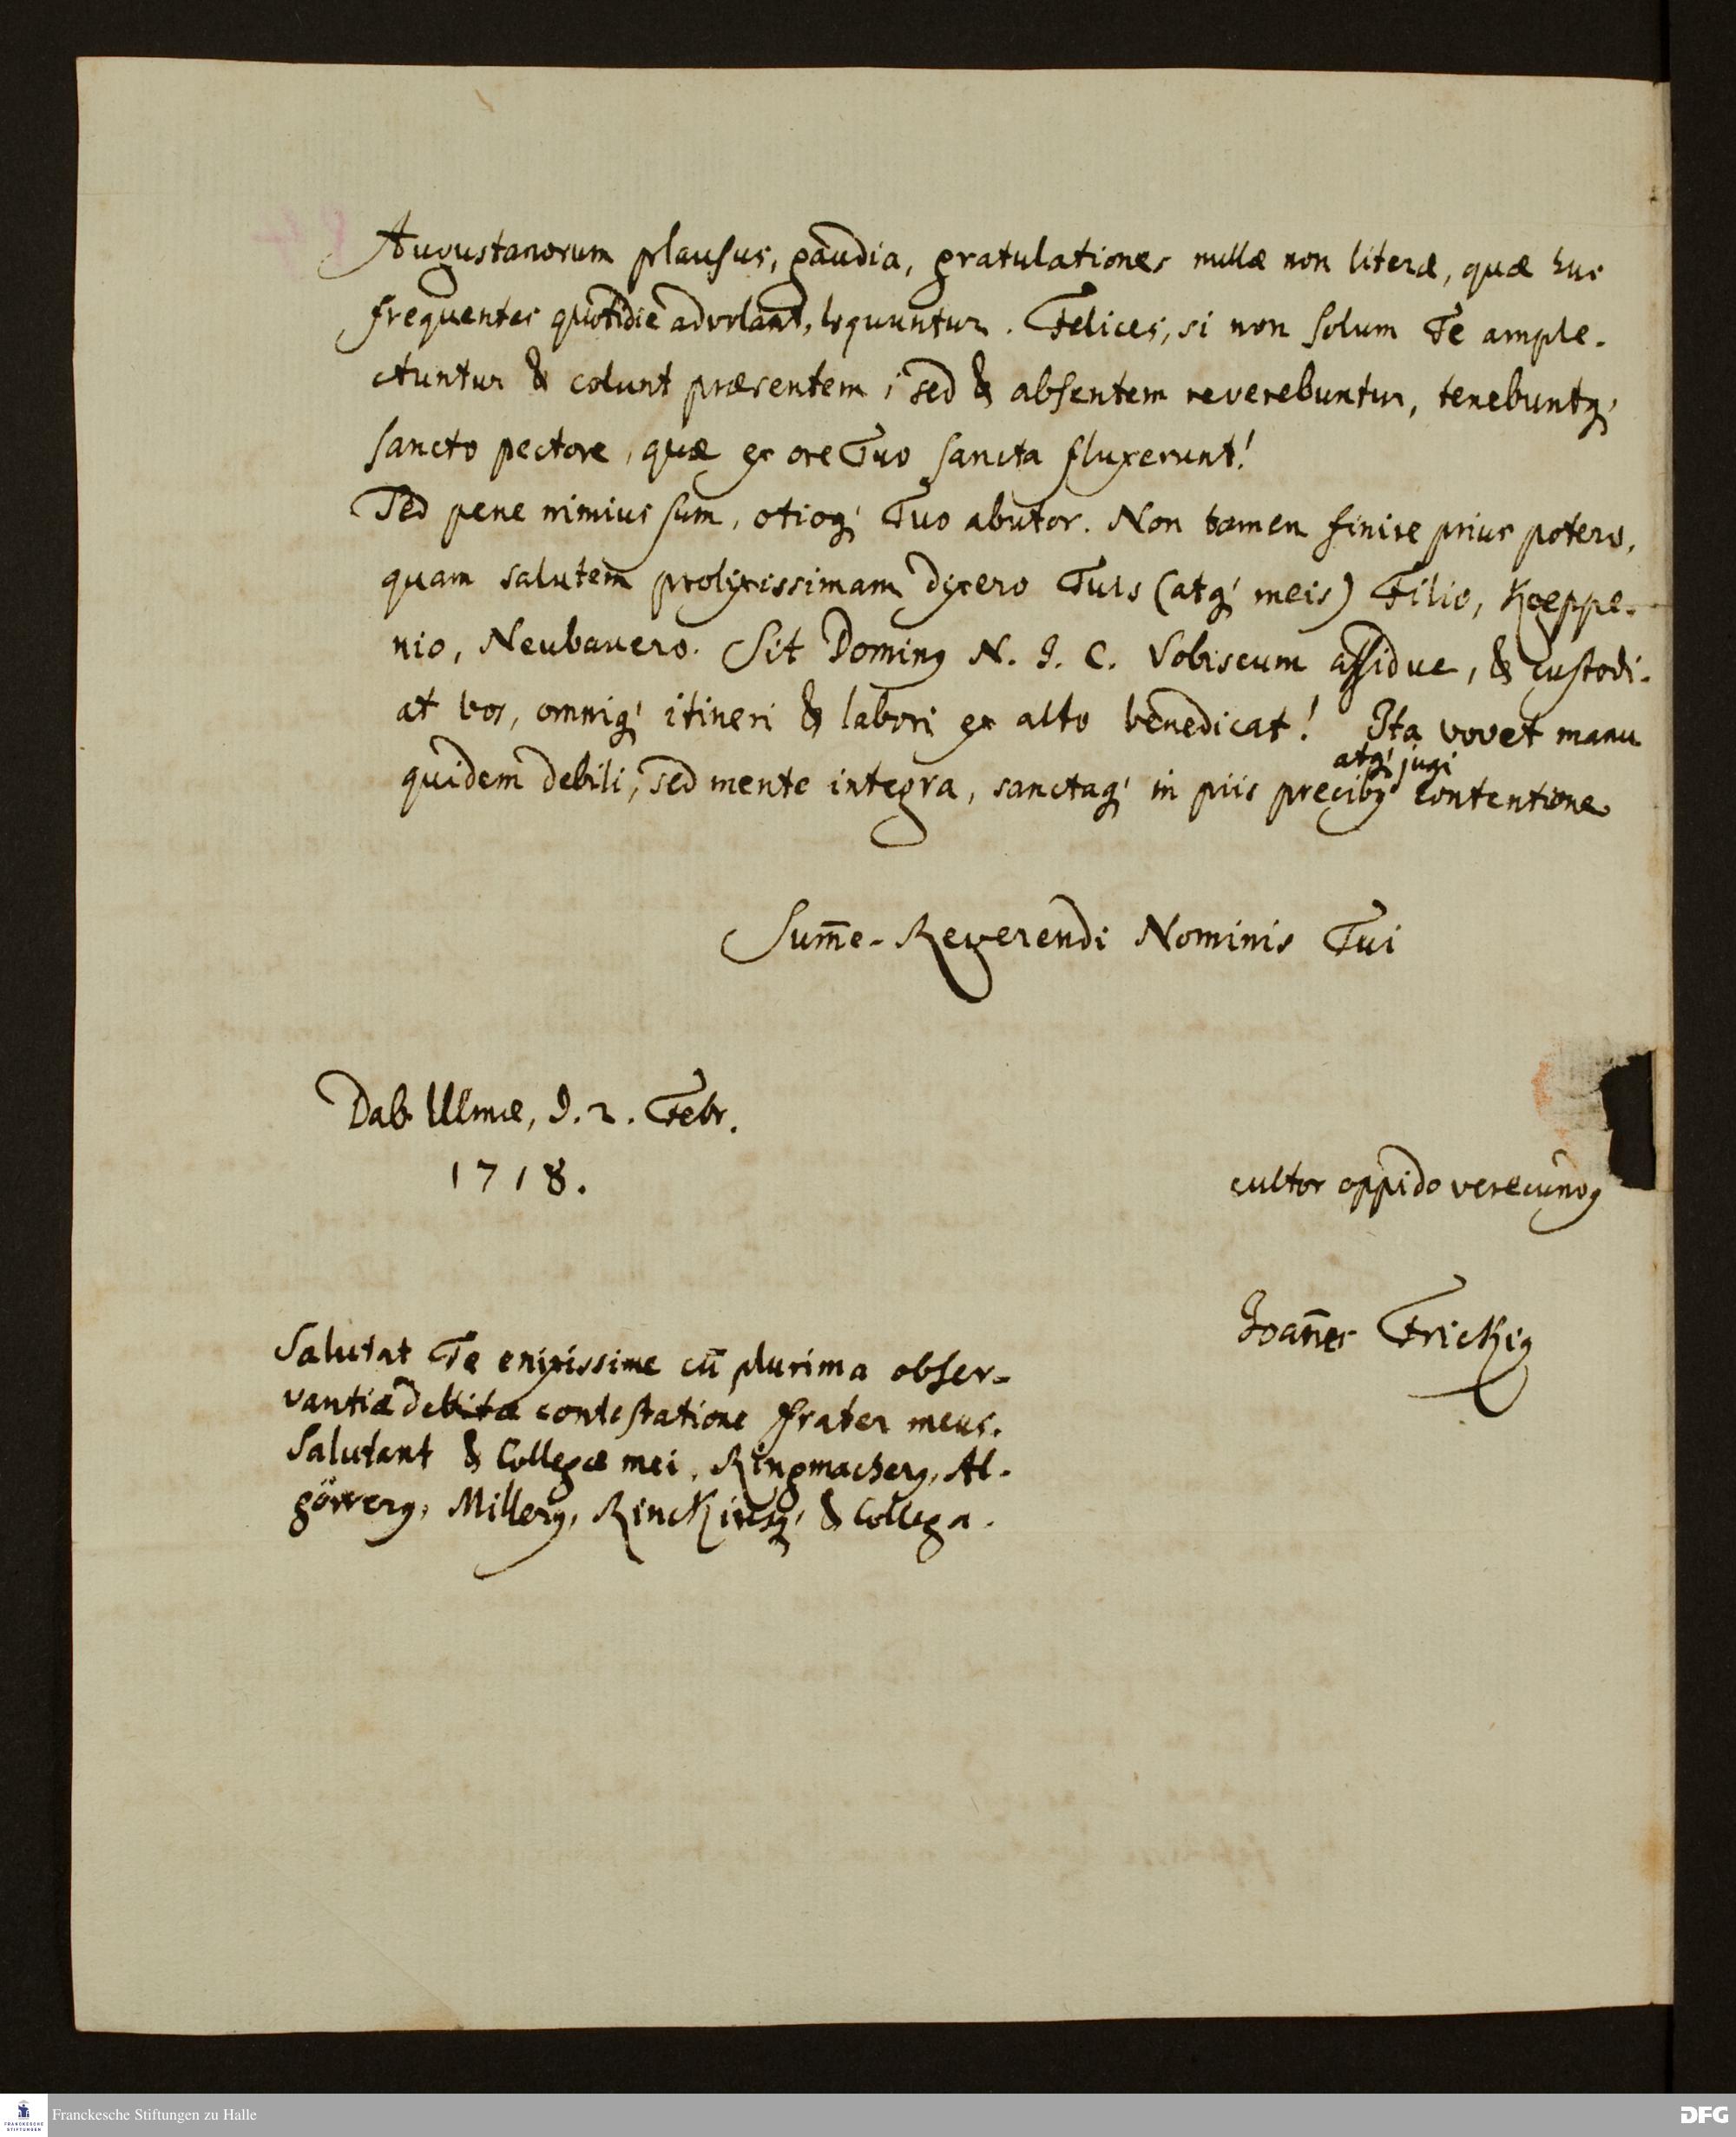 Augustanorum plausus, gaudia, gratulationes nullæ non literæ, quæ huc
frequentes quotidie advolant, loquuntur. Felices, si non solum Te ample-
ctuntur & colunt præsentem; sed & absentem reverebuntur, tenebuntq́;
sancto pectore, quæ ex ore Tuo sancta fluxerunt!
Sed pene nimius sum, otioq́; Tuo abutor. Non tamen finire prius potero,
quam salutem prolixissimam dixero Tuis (atq́; meis) Filio, Koeppe-
nio, Neubauero. Sit Dominꝰ N. J. C. Vobiscum assidue, & custodi-
at vos, omniq́; itineri & labori ex alto benedicat! Ita vovet manu
atq́; jugi
quidem debili, sed mente integra, sanctaq́; in piis precibꝰ contentione
Sum̄e-Reverendi Nominis Tui
Dab. Ulmæ, d. 2. Febr.
1718.
cultor oppido verecundꝰ
Joan̄es Frickiꝰ
Salutat Te enixissime cū plurima obser-
vantiæ debitæ contestatione frater meus.
Salutant & Collegæ mei, Ringmacherꝰ, Al-
göwerꝰ, Millerꝰ, Rinckiusq́; & Collega.
Franckesche Stiftungen zu Halle
FRANCKESCHE
STIFTUNGEN
DFG